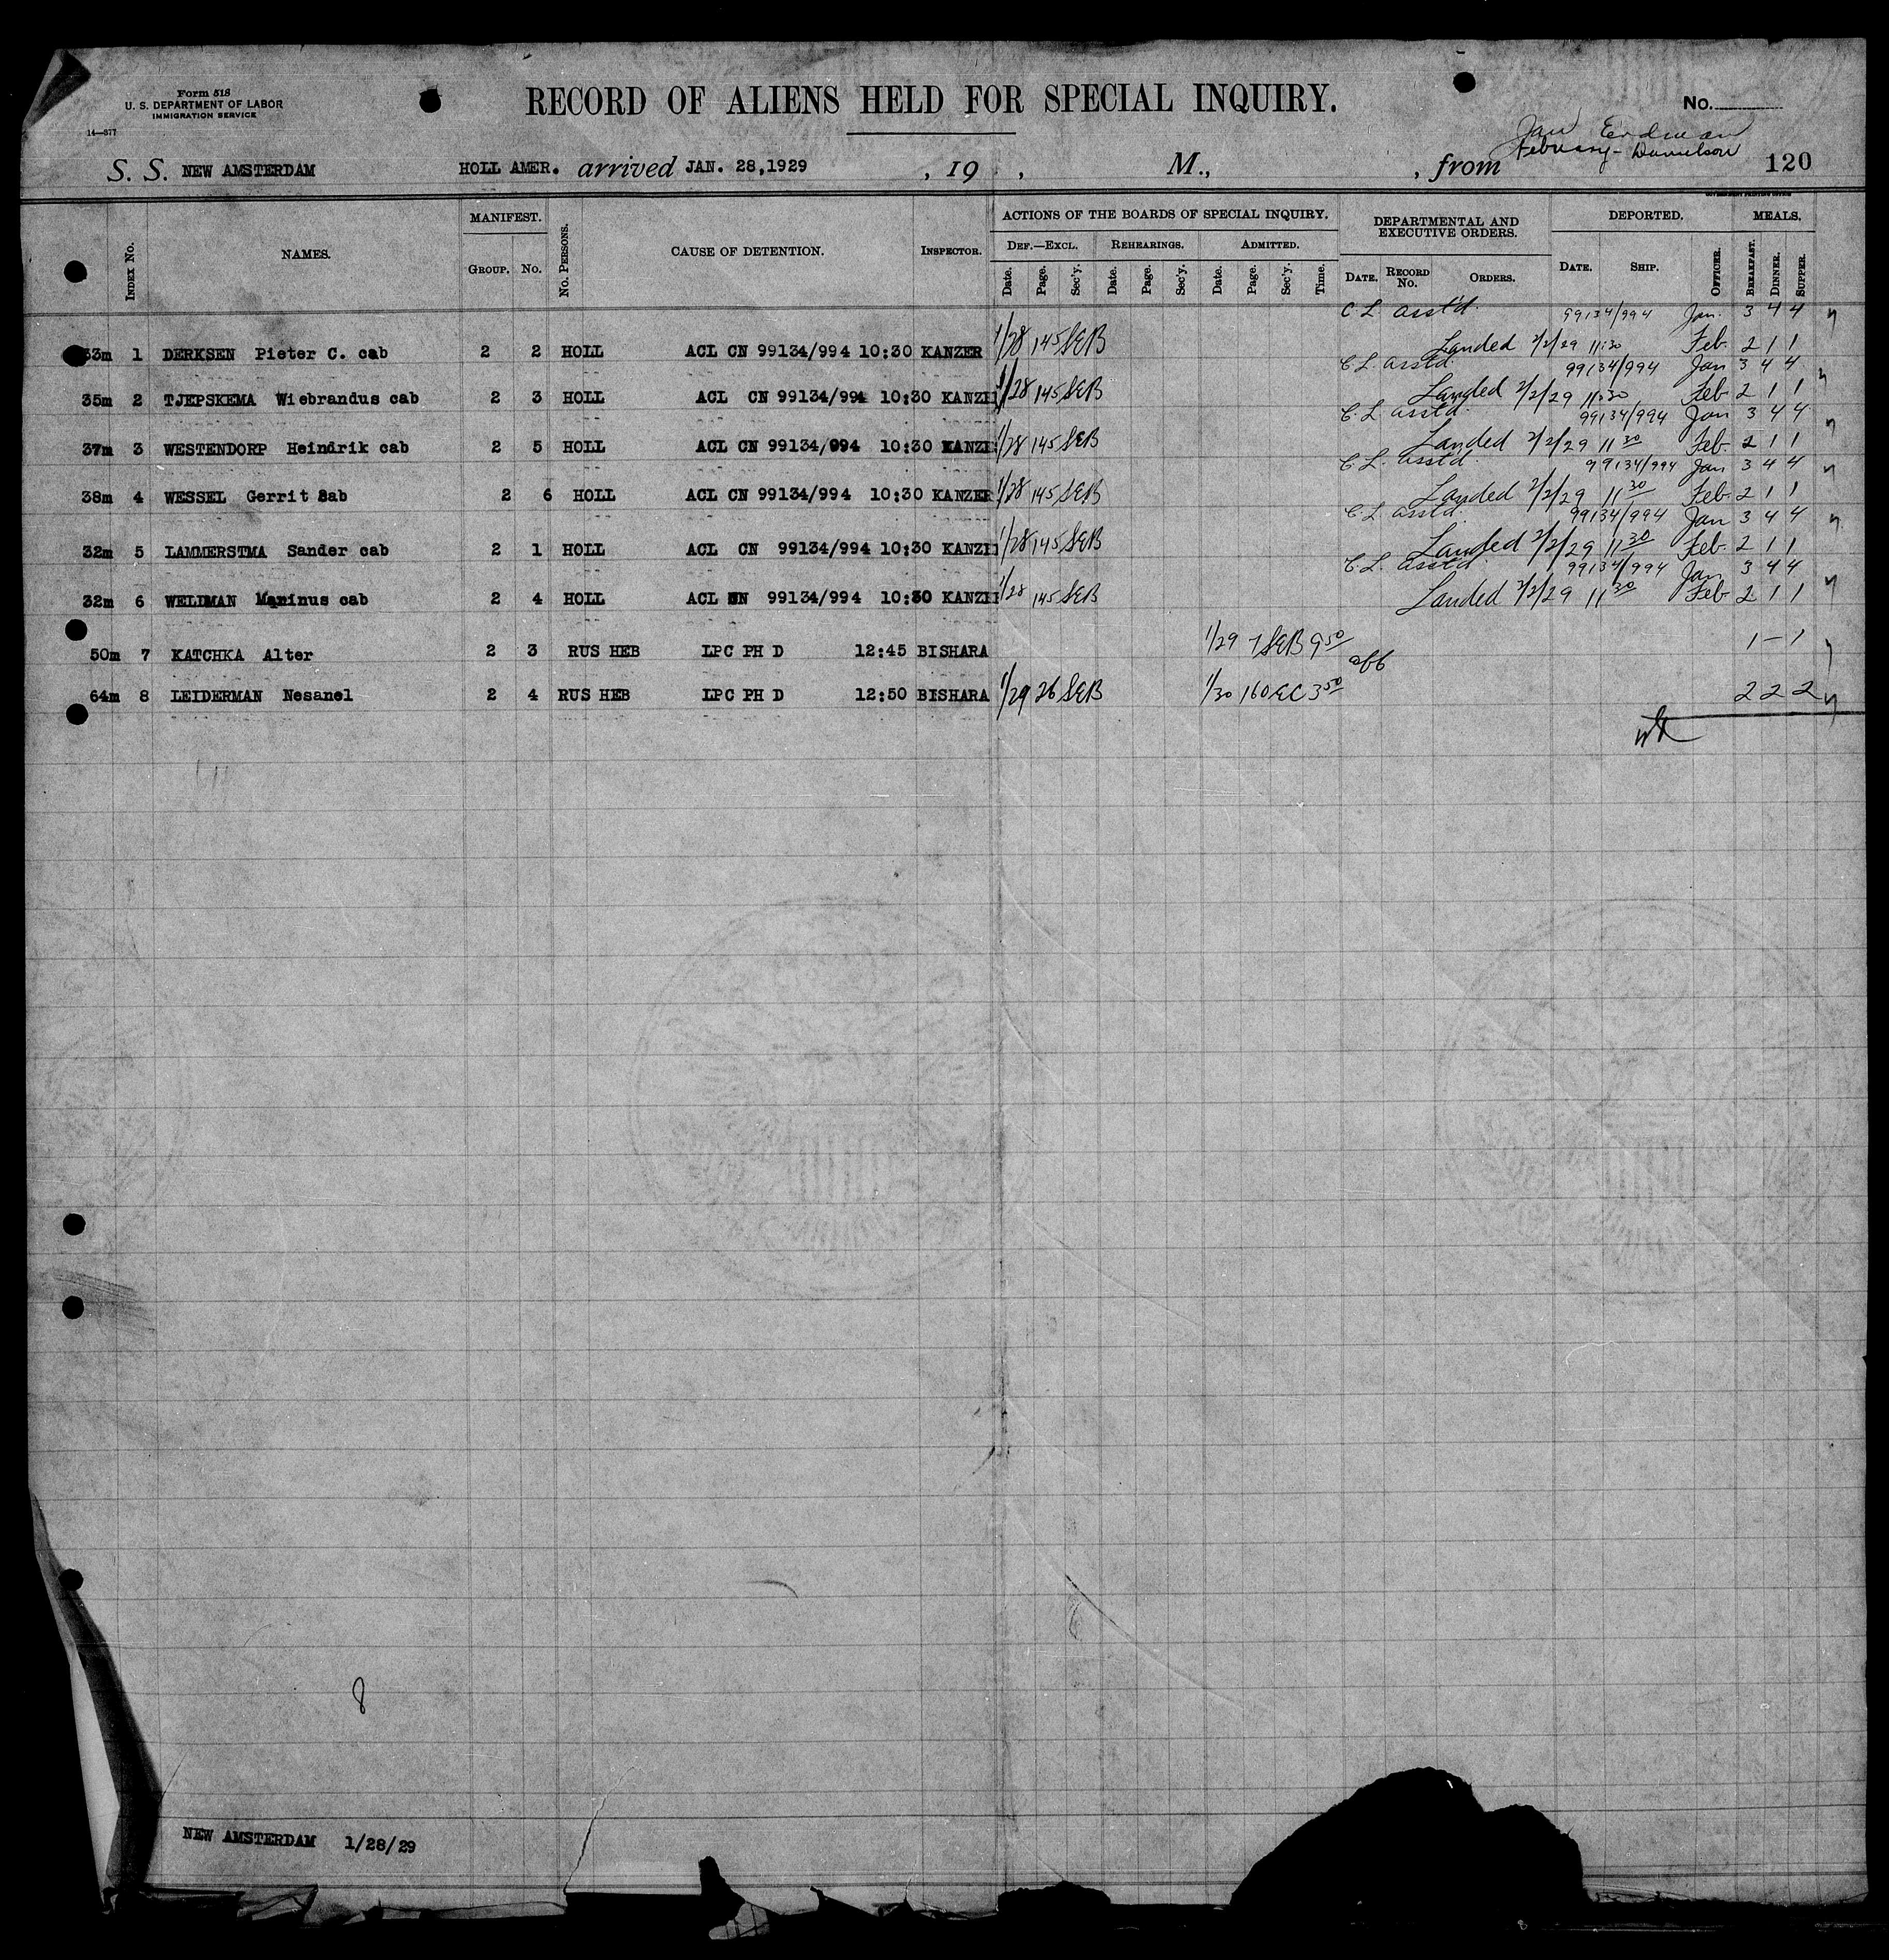 Form 518
U. S. DEPARTMENT OF LABOR
IMMIGRATION SERVICE
14—377
RECORD OF ALIENS HELD FOR SPECIAL INQUIRY.
No.
Jan Erdman
February - Danielson
S. S. NEW AMSTERDAM HOLL AMER. arrived JAN. 28,1929 , 19 , M., , from 120
GOVERNMENT PRINTING OFFICE
INDEX No. NAMES. MANIFEST. GROUP. No. No. PERSONS. CAUSE OF DETENTION. INSPECTOR. ACTIONS OF THE BOARDS OF SPECIAL INQUIRY. DEPARTMENTAL AND EXECUTIVE ORDERS. DEPORTED. MEALS.
DEF.—EXCL. REHEARINGS. ADMITTED.
Date. Page. Sec'y. Date. Page. Sec'y. Date. Page. Sec'y. Time. DATE. RECORD No. ORDERS. DATE. SHIP. OFFICER. BREAKFAST. DINNER. SUPPER.
C L asst'd. 99134/994 Jan. 3 4 4
33m 1 DERKSEN Pieter C. cab 2 2 HOLL ACL CN 99134/994 10:30 KANZER 1/28 145 SEB Landed 2/2/29 11:30 Feb. 2 1 1
C L. asst'd. 99134/994 Jan 3 4 4
35m 2 TJEPSKEMA Wiebrandus cab 2 3 HOLL ACL CN 99134/994 10:30 KANZE 1/28 145 SEB Landed 2/2/29 11:30 Feb 2 1 1
C. L asst'd. 99134/994 Jan 3 4 4
37m 3 WESTENDORP Heindrik cab 2 5 HOLL ACL CN 99134/994 10:30 KANZE 1/28 145 SEB Landed 2/2/29 11 30 Feb. 2 1 1
C. L. asst'd. 99134/994 Jan 3 4 4
38m 4 WESSEL Gerrit cab 2 6 HOLL ACL CN 99134/994 10:30 KANZER 1/28 145 SEB Landed 2/2/29 11 30 Feb. 2 1 1
C L asst'd. 99134/994 Jan 3 4 4
32m 5 LAMMERSTMA Sander cab 2 1 HOLL ACL CN 99134/994 10:30 KANZE 1/28 145 SEB Landed 2/2/29 11 30 Feb. 2 1 1
C. L. asst'd. 99134/994 Jan 3 4 4
32m 6 WELDMAN Marinus cab 2 4 HOLL ACL CN 99134/994 10:30 KANZE 1/28 145 SEB Landed 2/2/29 11 30 Feb 2 1 1
50m 7 KATCHKA Alter 2 3 RUS HEB LPC PH D 12:45 BISHARA 1/29 7 SEB 9 50 1 - 1
64m 8 LEIDERMAN Nesanel 2 4 RUS HEB LPC PH D 12:50 BISHARA 1/29 26 SEB 1/30 160 EC 3 50 2 2 2
8
NEW AMSTERDAM 1/28/29